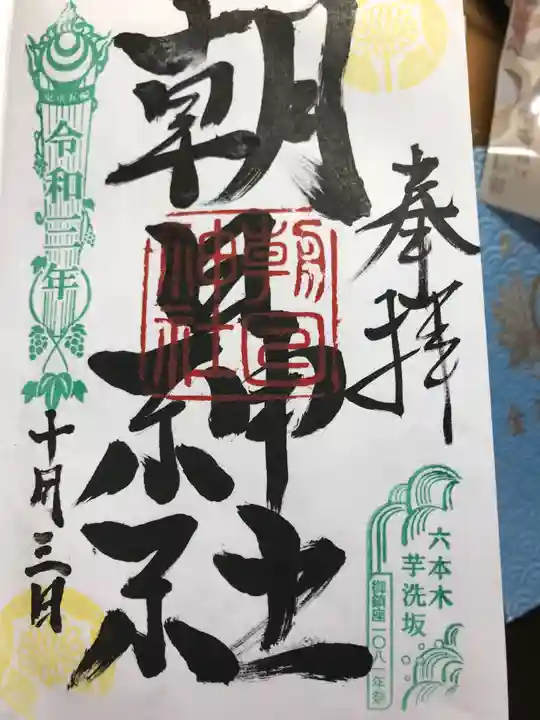 奉拝
六本木
芋洗坂
御鎮座一〇八一年祭
朝日神社
朝日
神社
令和三年
十月三日